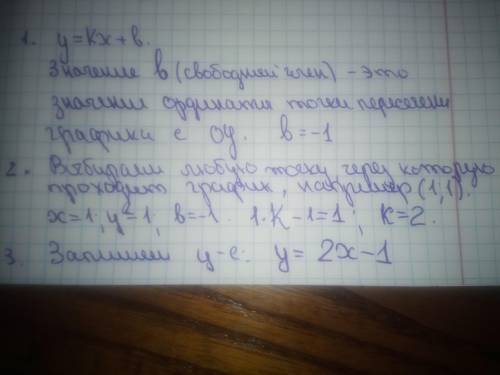 1. y=kx+b.
Значение b (свободный член) - это
значение ординаты точки пересечения
графика с OY. b=-1
2. Выбираем любую точку, через которую
проходит график, например (1;1).
x=1; y=1; b=-1. 1·K-1=1; K=2.
3. Запишем ур-е: y=2x-1